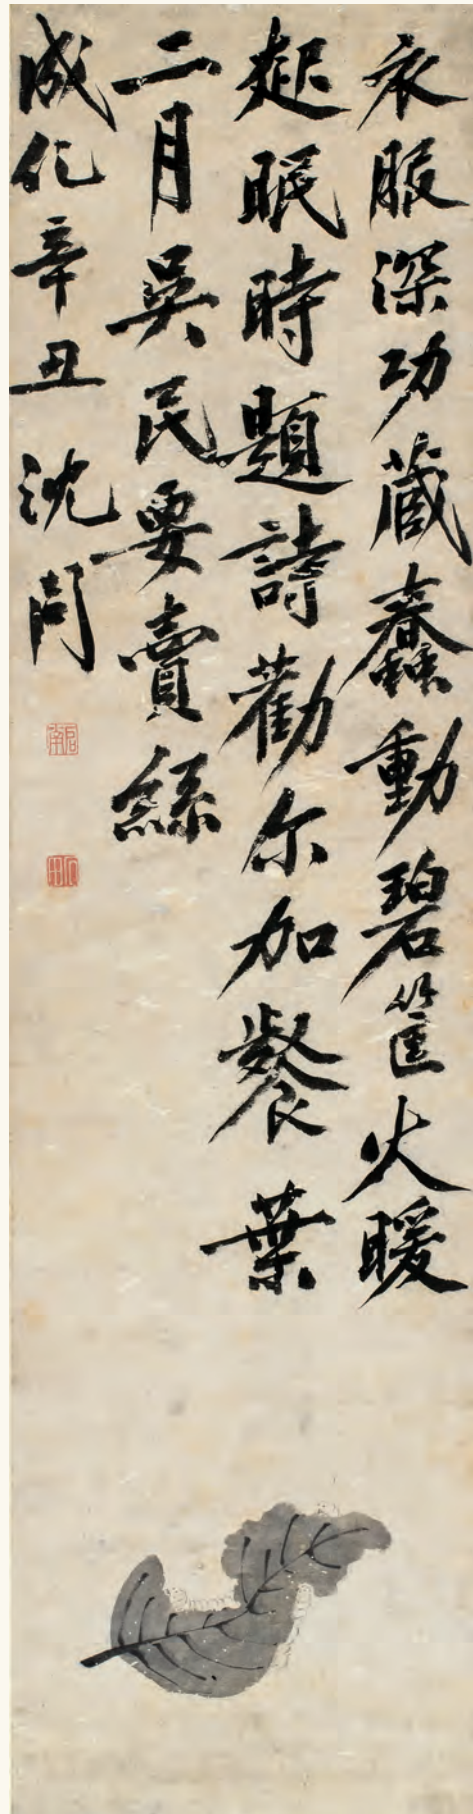 衣服深功藏蠢動碧筐火暖
起眠時題詩勸尔加餐葉
二月吳民要賣絲
成化辛丑 沈周
啟南
石田